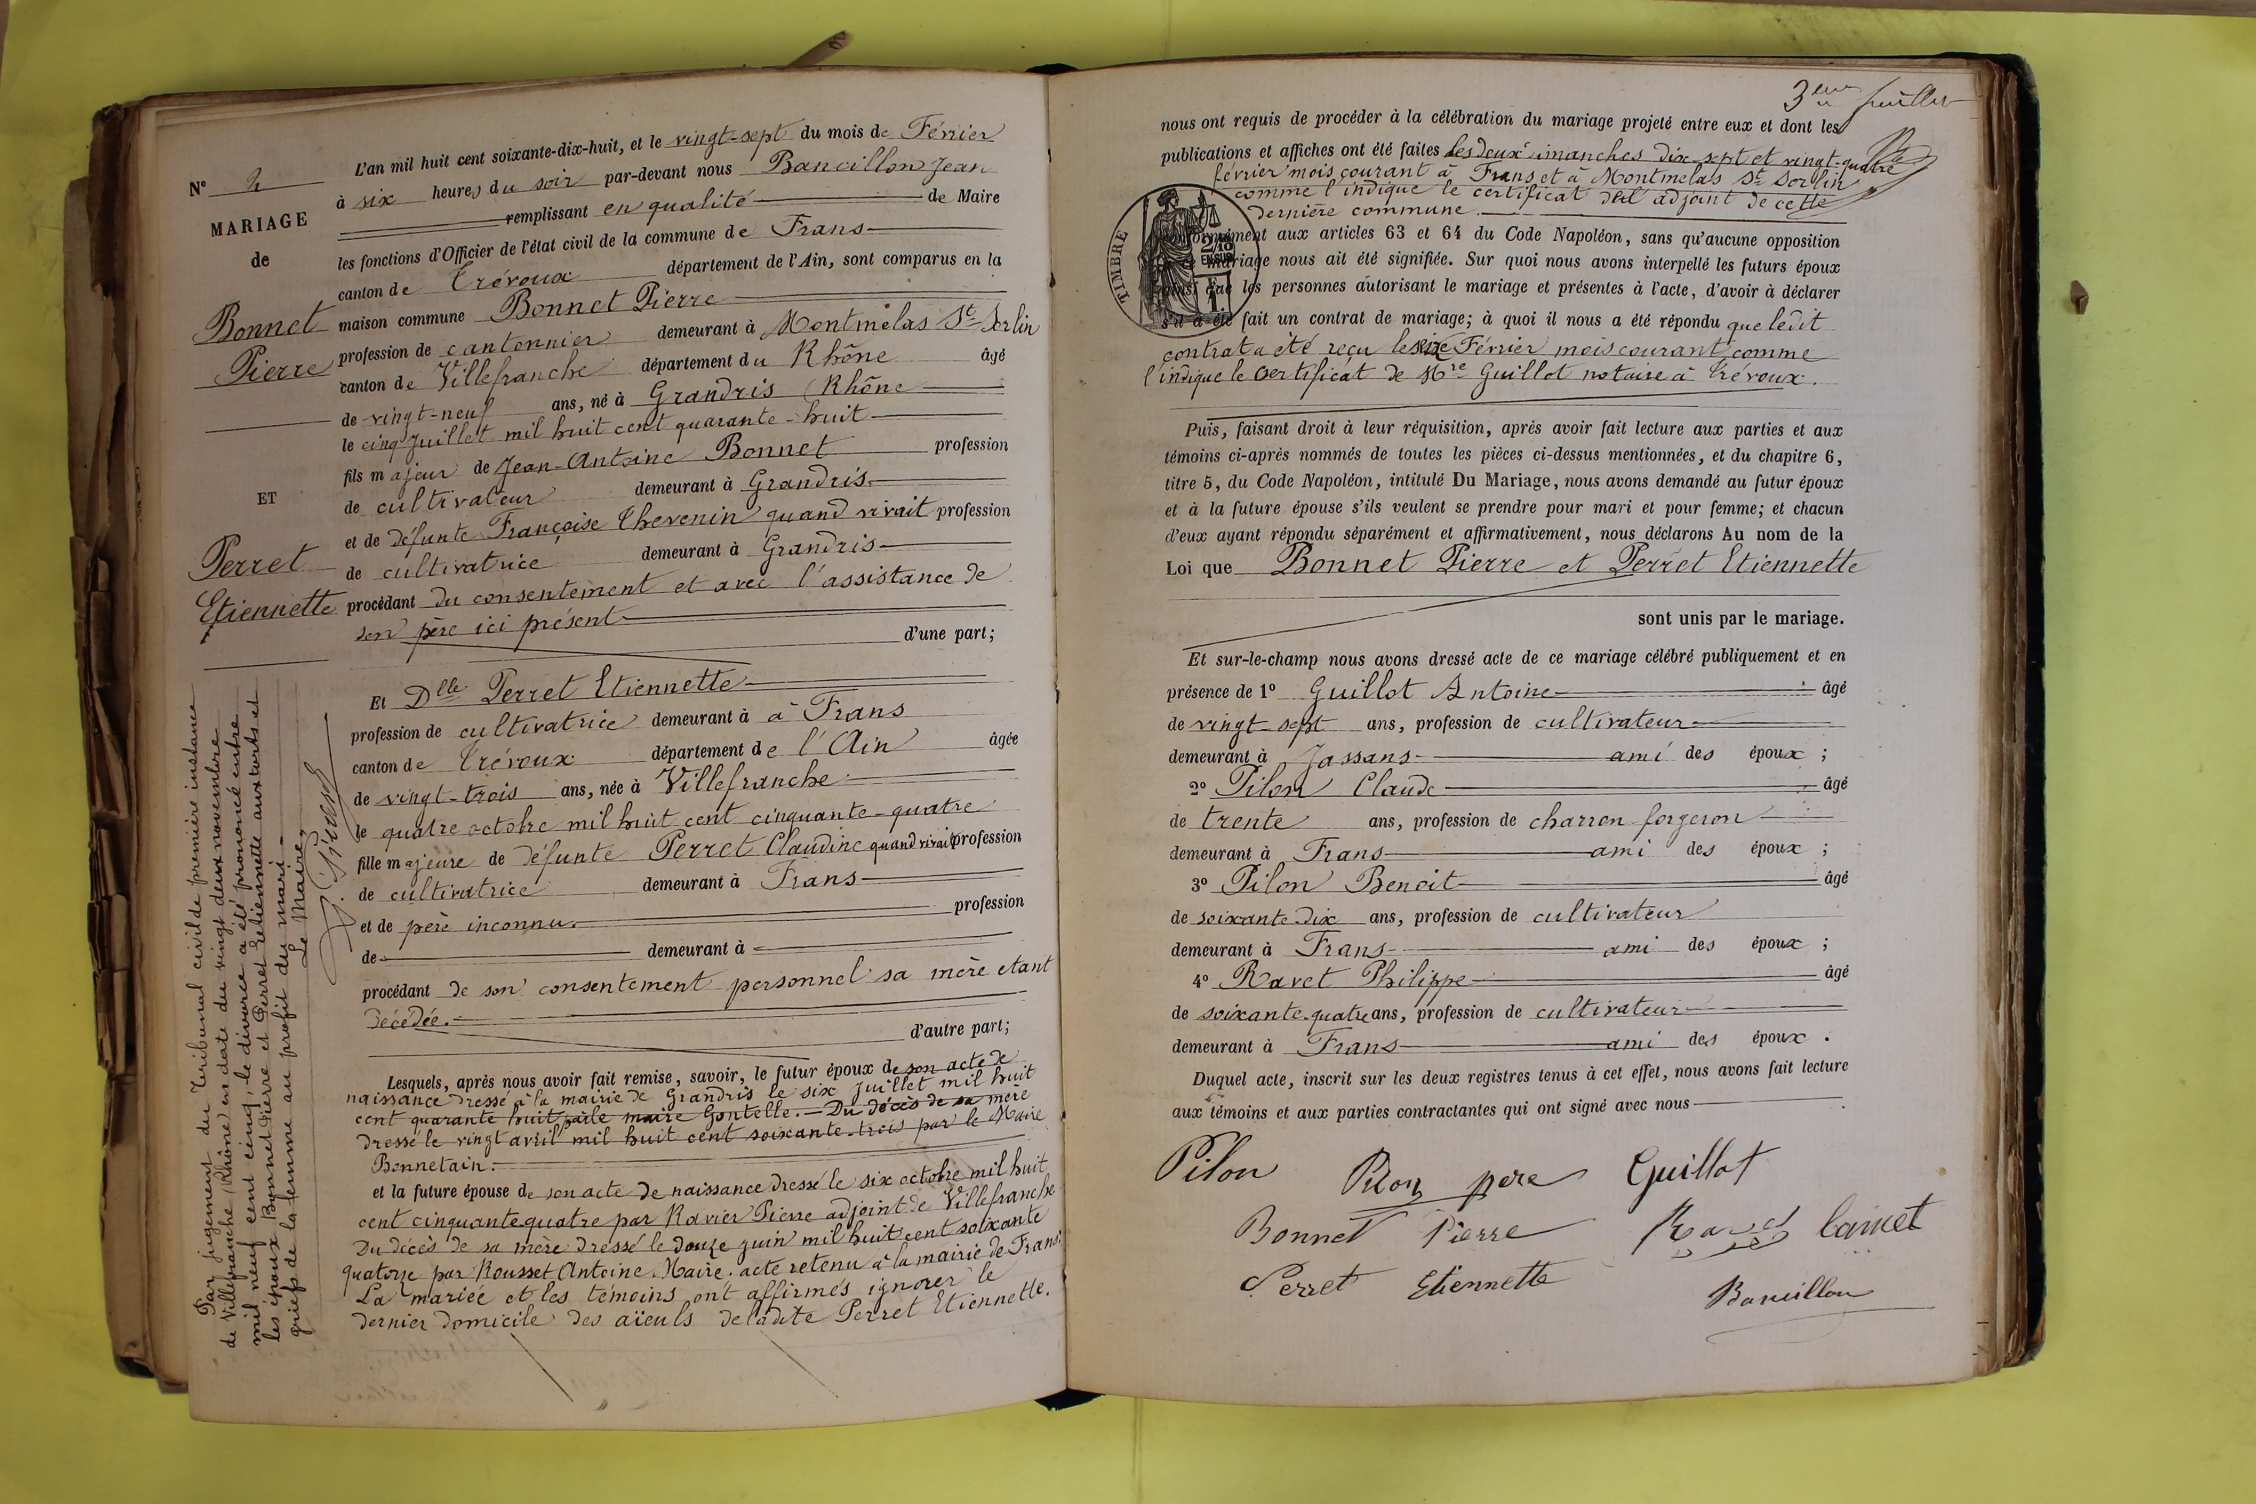 L'an mil huit cent soixante-dix-huit, et le vingt-sept du mois de Février
N°
à six heures du soir par-devant nous Jean
MARIAGE
remplissant en qualité de Maire
de
les fonctions d'Officier de l'état civil de la commune de Frans
canton de Trévoux département de l'Ain, sont comparus en la
Bonnet
maison commune Bonnet Pierre
Pierre
profession de cantonnier demeurant à Montmelas St Sorlin
canton de Villefranche département du Rhône âgé
de vingt-neuf ans, né à Grandris (Rhône
le cinq Juillet mil huit cent quarante-huit
fils majeur de Jean-Antoine Bonnet profession
ET
de cultivateur demeurant à Grandris
et de défunte Françoise Thevenin quand vivait profession
Perret
de cultivatrice demeurant à Grandris
Etiennette
procédant du consentement et avec l'assistance de
son père ici présent
d'une part;
Et Dlle Perret Etiennette
profession de cultivatrice demeurant à à Frans
canton de Trévoux département de l'Ain âgée
de vingt-trois ans, née à Villefranche
le quatre octobre mil huit cent cinquante-quatre
fille majeure de défunte Perret Claudine quand vivait profession
de cultivatrice demeurant à Frans
et de père inconnu profession
de demeurant à
procédant de son consentement personnel sa mère etant
décédée.
d'autre part;
Lesquels, après nous avoir fait remise, savoir, le futur époux de son acte de
naissance dressé à la mairie de Grandris le six Juillet mil huit
cent quarante huit par le maire Gontelle. Du décès de sa mère
dressé le vingt avril mil huit cent soixante-trois par le Maire
Bonnetain.
et la future épouse de son acte de naissance dressé le six octobre mil huit
cent cinquante quatre par Ravier Pierre adjoint de Villefranche
Du décès de sa mère dressé le douze juin mil huit cent soixante
quatorze par Rousset Antoine Maire. acte retenu à la mairie de Frans.
La mariée et les témoins ont affirmés ignorer le
dernier domicile des aïeuls de ladite Perret Etiennette.
Par jugement du tribunal civil de première instance
de Villefranche (Rhône) en date du vingt deux novembre
mil neuf cent cinq, le divorce a été prononcé entre
les époux Bonnet Pierre et Perret Etiennette aux torts et
griefs de la femme au profit du mari
Le Maire,
3eme feuillet
nous ont requis de procéder à la célébration du mariage projeté entre eux et dont les
publications et affiches ont été faites les deux dimanches dix-sept et vingt-quatre
février mois courant à Frans et à Montmelas St Sorlin
comme l'indique le certificat de l'adjoint de cette
dernière commune.
conformément aux articles 63 et 64 du Code Napoléon, sans qu'aucune opposition
mariage nous ait été signifiée. Sur quoi nous avons interpellé les futurs époux
ainsi que les personnes autorisant le mariage et présentes à l'acte, d'avoir à déclarer
s'il a été fait un contrat de mariage; à quoi il nous a été répondu que ledit
contrat a été reçu le Février mois courant comme
l'indique le certificat de Mre Guillot notaire à Trévoux.
TIMBRE
Puis, faisant droit à leur réquisition, après avoir fait lecture aux parties et aux
témoins ci-après nommés de toutes les pièces ci-dessus mentionnées, et du chapitre 6,
titre 5, du Code Napoléon, intitulé Du Mariage, nous avons demandé au futur époux
et à la future épouse s'ils veulent se prendre pour mari et pour femme; et chacun
d'eux ayant répondu séparément et affirmativement, nous déclarons Au nom de la
Loi que Bonnet Pierre et Perret Etiennette
sont unis par le mariage.
Et sur-le-champ nous avons dressé acte de ce mariage célébré publiquement et en
présence de 1° Guillot Antoine âgé
de vingt-sept ans, profession de cultivateur
demeurant à Jassans ami des époux ;
2° Pilon Claude âgé
de trente ans, profession de charron forgeron
demeurant à Frans ami des époux ;
3° Pilon Benoit âgé
de soixante dix ans, profession de cultivateur
demeurant à Frans ami des époux ;
4° Ravet Philippe âgé
de soixante-quatre ans, profession de cultivateur
demeurant à Frans ami des époux .
Duquel acte, inscrit sur les deux registres tenus à cet effet, nous avons fait lecture
aux témoins et aux parties contractantes qui ont signé avec nous
Pilon Pilon pere Guillot
Bonnet Pierre Ravet
Perret Etiennette